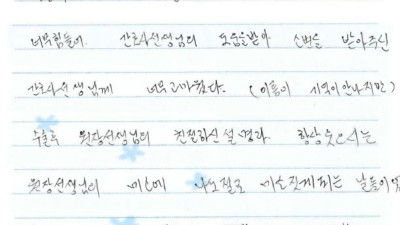 너무힘들어. 간호사선생님의 도움을받아 소변을 받아주신
간호사선생님께 너무고마웠다. (이름이 기억이안나지만)
수술후 원장선생님의 친절하신설명과. 항상웃으시는
원장선생님의 미소에 나도절로 미소짓게되는 날들이